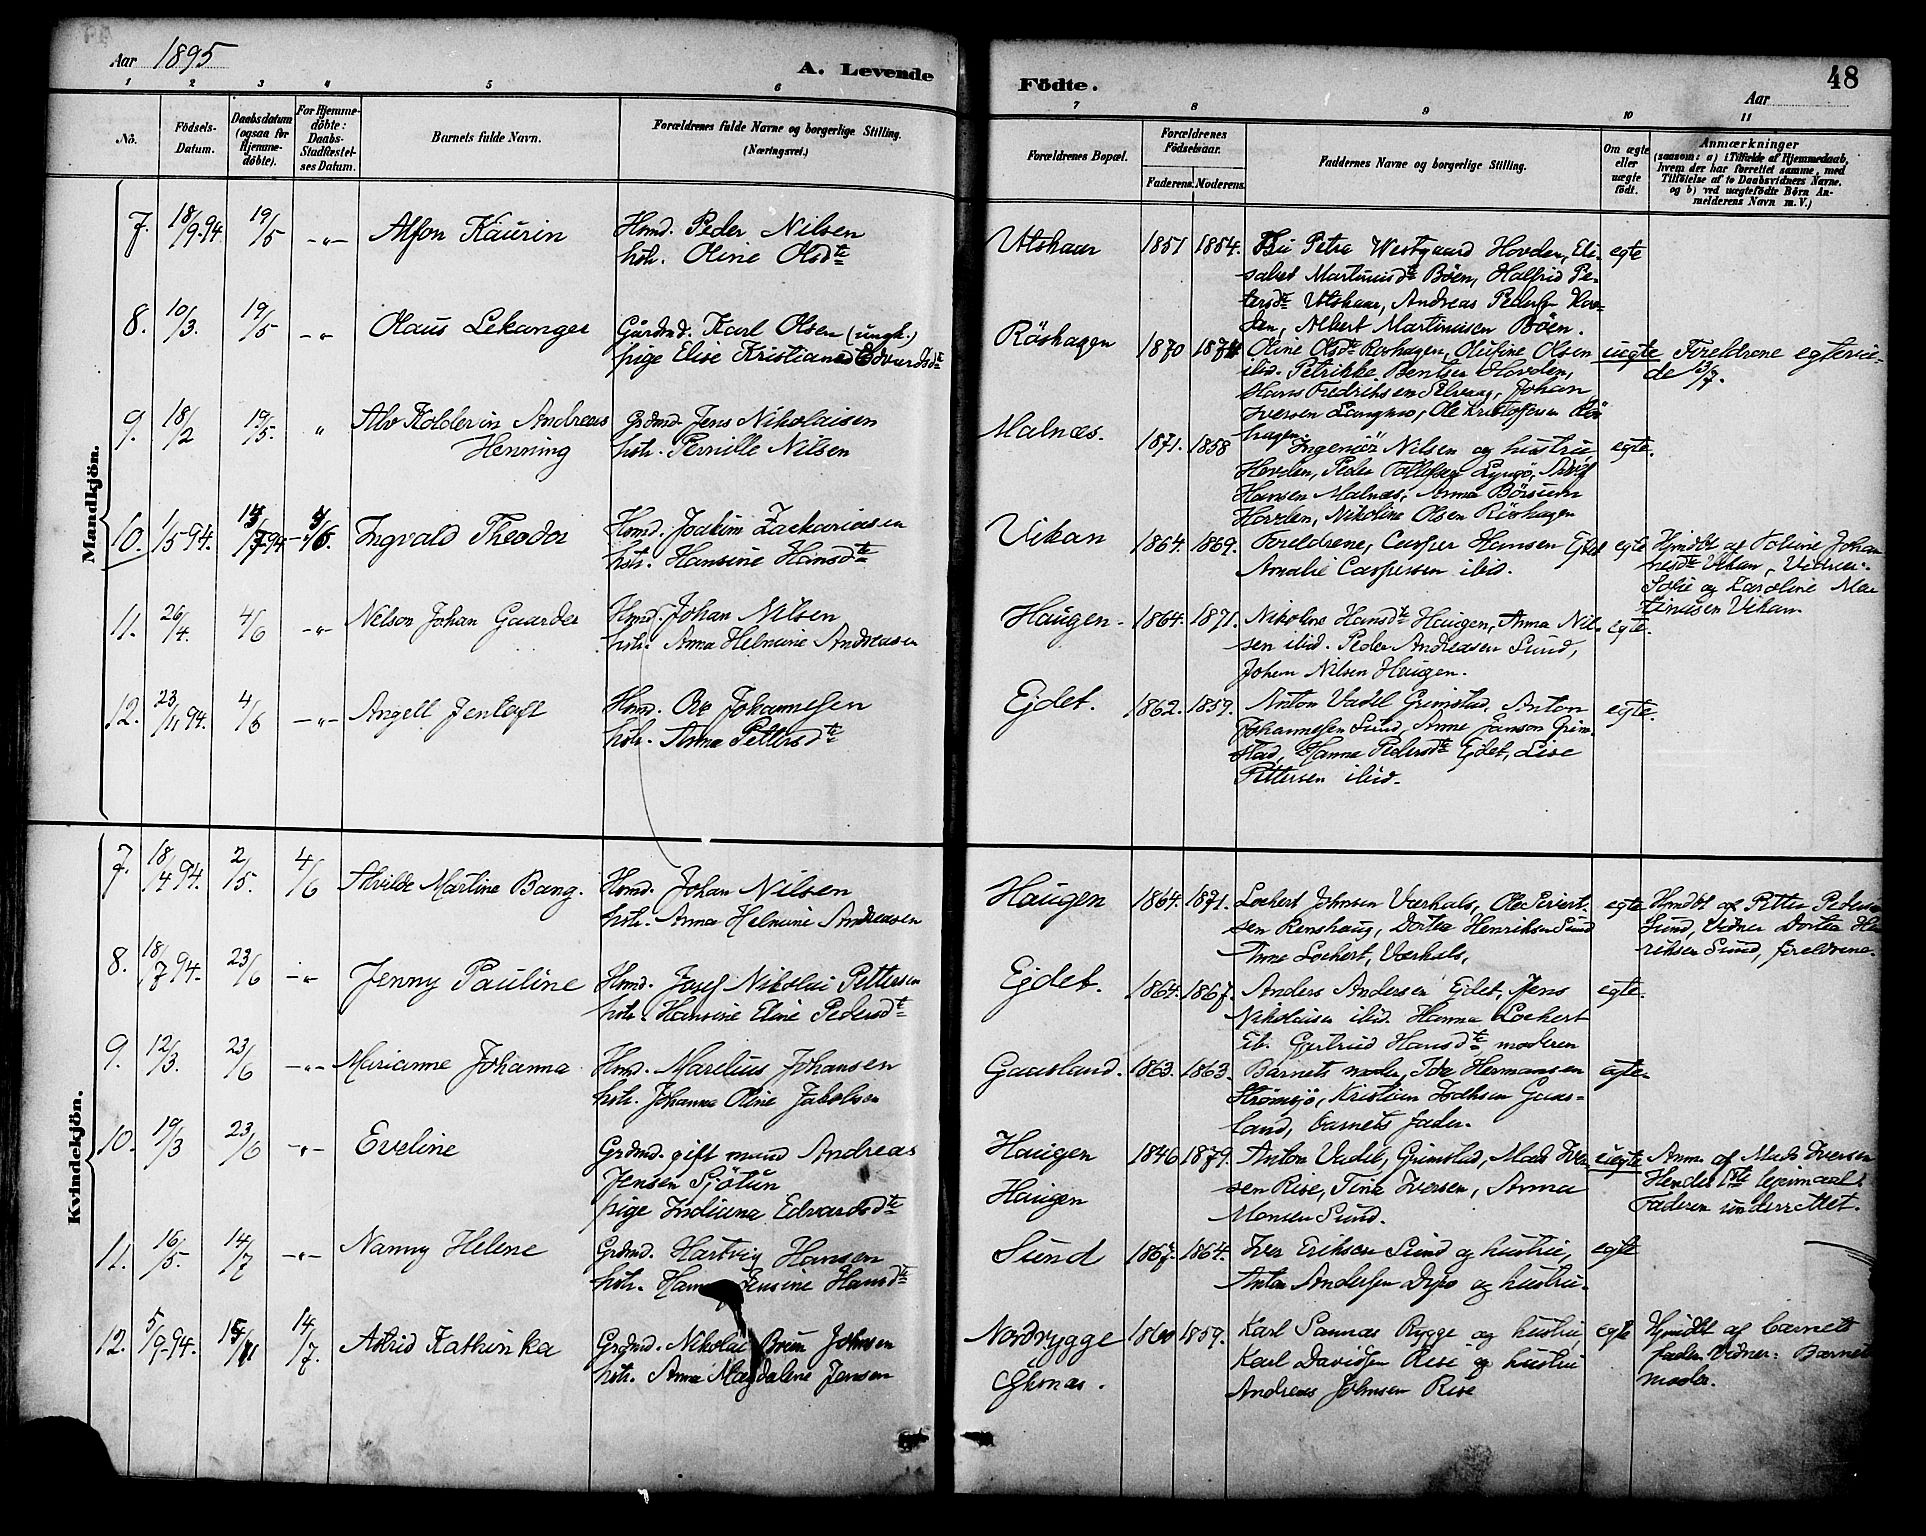 Aar 1895
A. Levende
Födte.
48
Aar
1 2 3 4 5 6 7 8 9 10 11
No.
Födsels-
Datum.
Daabsdatum
(ogsaa for
Hjemme-
döbte).
For Hjemme-
döbte:
Daabs-
Stadfæstel-
ses Datum.
Barnets fulde Navn.
Forældrenes fulde Navne og borgerlige Stilling.
(Næringsvei.)
Forældrenes Bopæl.
Forældrenes
Födselsaar.
Faderens. Moderens.
Faddernes Navne og borgerlige Stilling.
Om ægte
eller
uægte
födt.
Anmærkninger
(saasom: a) i Tilfælde af Hjemmedaab,
hvem der har forrettet samme, med
Tilföielse af to Daabsvidners Navne,
og b) ved uægtefödte Börn An-
melderens Navn m. V.)
Mandkjön.
7. 18/9.94. 19/5 -"- Alfon Kaurin
Hsmd. Peder Nilsen
hstr. Oline Olsdte
Utskaar 1851 1854.
Petra Westgaard Hovden, Eli-
sabet Martinusdte Böen, Halfrid Pe-
tersdte Utskaar, Andreas Peders Hov-
den, Albert Martinusen Böen.
egte
8. 10/3. 19/5 -"- Olaus Lekanger
Gårdmd. Karl Olsen (ungk.)
pige Elise Kristiane Edvardsdte
Röshagen 1870 1874
Oline Olsdte Röshagen, Olufine Olsen
ibid. Petrikke Bentsen Hovden,
Hans Fredriksen Selvaag, Johan
Iversen Langnes, Ole Kristofersen Rös
hagen.
uegte Foreldrene egtevie-
de 3/7.
9. 18/2 19/5. " Alv Kolderin Andreas
Henning
Grdmd. Jens Nikolaisen
hstr. Pernille Nilsen
Malnæs. 1871. 1858
Ingeniör Nilsen og hustru
Hovden, Peder Lyngö,
Hansen Malnæs, Anna Börsum
Hovden, Nikoline Olsen Röshagen
egte.
10. 1/5 94. 4/6. Ingvald Theodor
Hsmd. Joakim Zackariasen
hstr. Hansine Hansdte
Vikan 1864. 1869.
Foreldrene, Casper Hansen Ejdet
Amalie Caspersen ibid.
egte Hjmdbt af Johan
nesdte Vikan, Vidner:
Sofie og Karoline Mar
tinusen Vikan.
11. 26/4. 4/6 -"- Nelson Johan Gaarder
Hsmd. Johan Nilsen
hstr. Anna Helmine Andreasen
Haugen - 1864. 1871.
Nikoline Hansdte Haugen, Anna Nil-
sen ibid. Peder Andreasen Sund,
Johan Nilsen Haugen.
egte.
12. 23/11 94. 4/6 -"- Angell Jenloft
Hsmd. Ole Johannessen
hstr. Anna Pettersdte
Ejdet. 1862. 1859.
Anton Vadel Grimstad, Anton
Johannessen Sund, Anne Janson Grim-
stad, Hanna Pedersdte Ejdet, Lise
Pettersen ibid.
egte.
Kvindekjön.
7. 18/4 94. 2/5. 4/6 Alvilde Martine Bang.
Hsmd. Johan Nilsen
hstr. Anna Helmine Andreasen
Haugen 1864. 1871.
Lockert Johnsen Værhals, Ole Sivert-
sen Renshaug, Dortea Henriksen Sund
Anne Lockert, Værhals,
egte Hmdbt af Petter Peders
Sund, Vidner Dortea Hen
riksen Sund, foreldrene.
8. 18/7 94. 23/6 -"- Jenny Pauline
Hsmd. Josef Nikolai Pettersen
hstr. Hansine Eline Pedersdte
Ejdet. 1864. 1867.
Anders Andersen Ejdet, Jens
Nikolaisen ibid. Hanna Lockert
ib. Gjertrud Hansdte, moderen
egte.
9. 12/3. 23/6 -"- Marianne Johanna
Hsmd. Marelius Johansen
hstr. Johanna Oline Jakobsen
Gaasland. 1863. 1863.
Barnets moder, Ida Hermansen
Strömsjö, Kristian Gaas-
land, barnets fader.
egte-
10. 19/3 23/6 -"- Eveline
Grdmd. gift mand Andreas
Jensen Sjötun
pige Indiana Edvardsdte
Haugen 1846 1879.
Haugen
Anton Vadel, Grimstad, Mads Iver-
sen Rise, Tina Iversen, Anna
Monsen Sund.
uegte Anm. af Mads Iversen
Hendes 1ste lejermaal.
Faderen underrettet.
11. 16/5. 14/7 -"- Nanny Helene
Grdmd. Hartvig Hansen
hstr. Jensine Hansdte
Sund 1867. 1864.
Iver Eriksen Sund og hustru,
Anton Andersen Dypö og hustru.
egte
12. 5/9-94. 14/7. Astrid Kathinka
Grdmd. Nikolai Brun Johnsen
hstr. Anna Magdalene Jensen
Nordrygge 1860 1859.
Karl Sannæs Rygge og hustru,
Karl Davidsen Rise og hustru
Andreas Johnsen Rise
egte Hjmdbt af barnets
fader. Vidner: Barnets
moder.